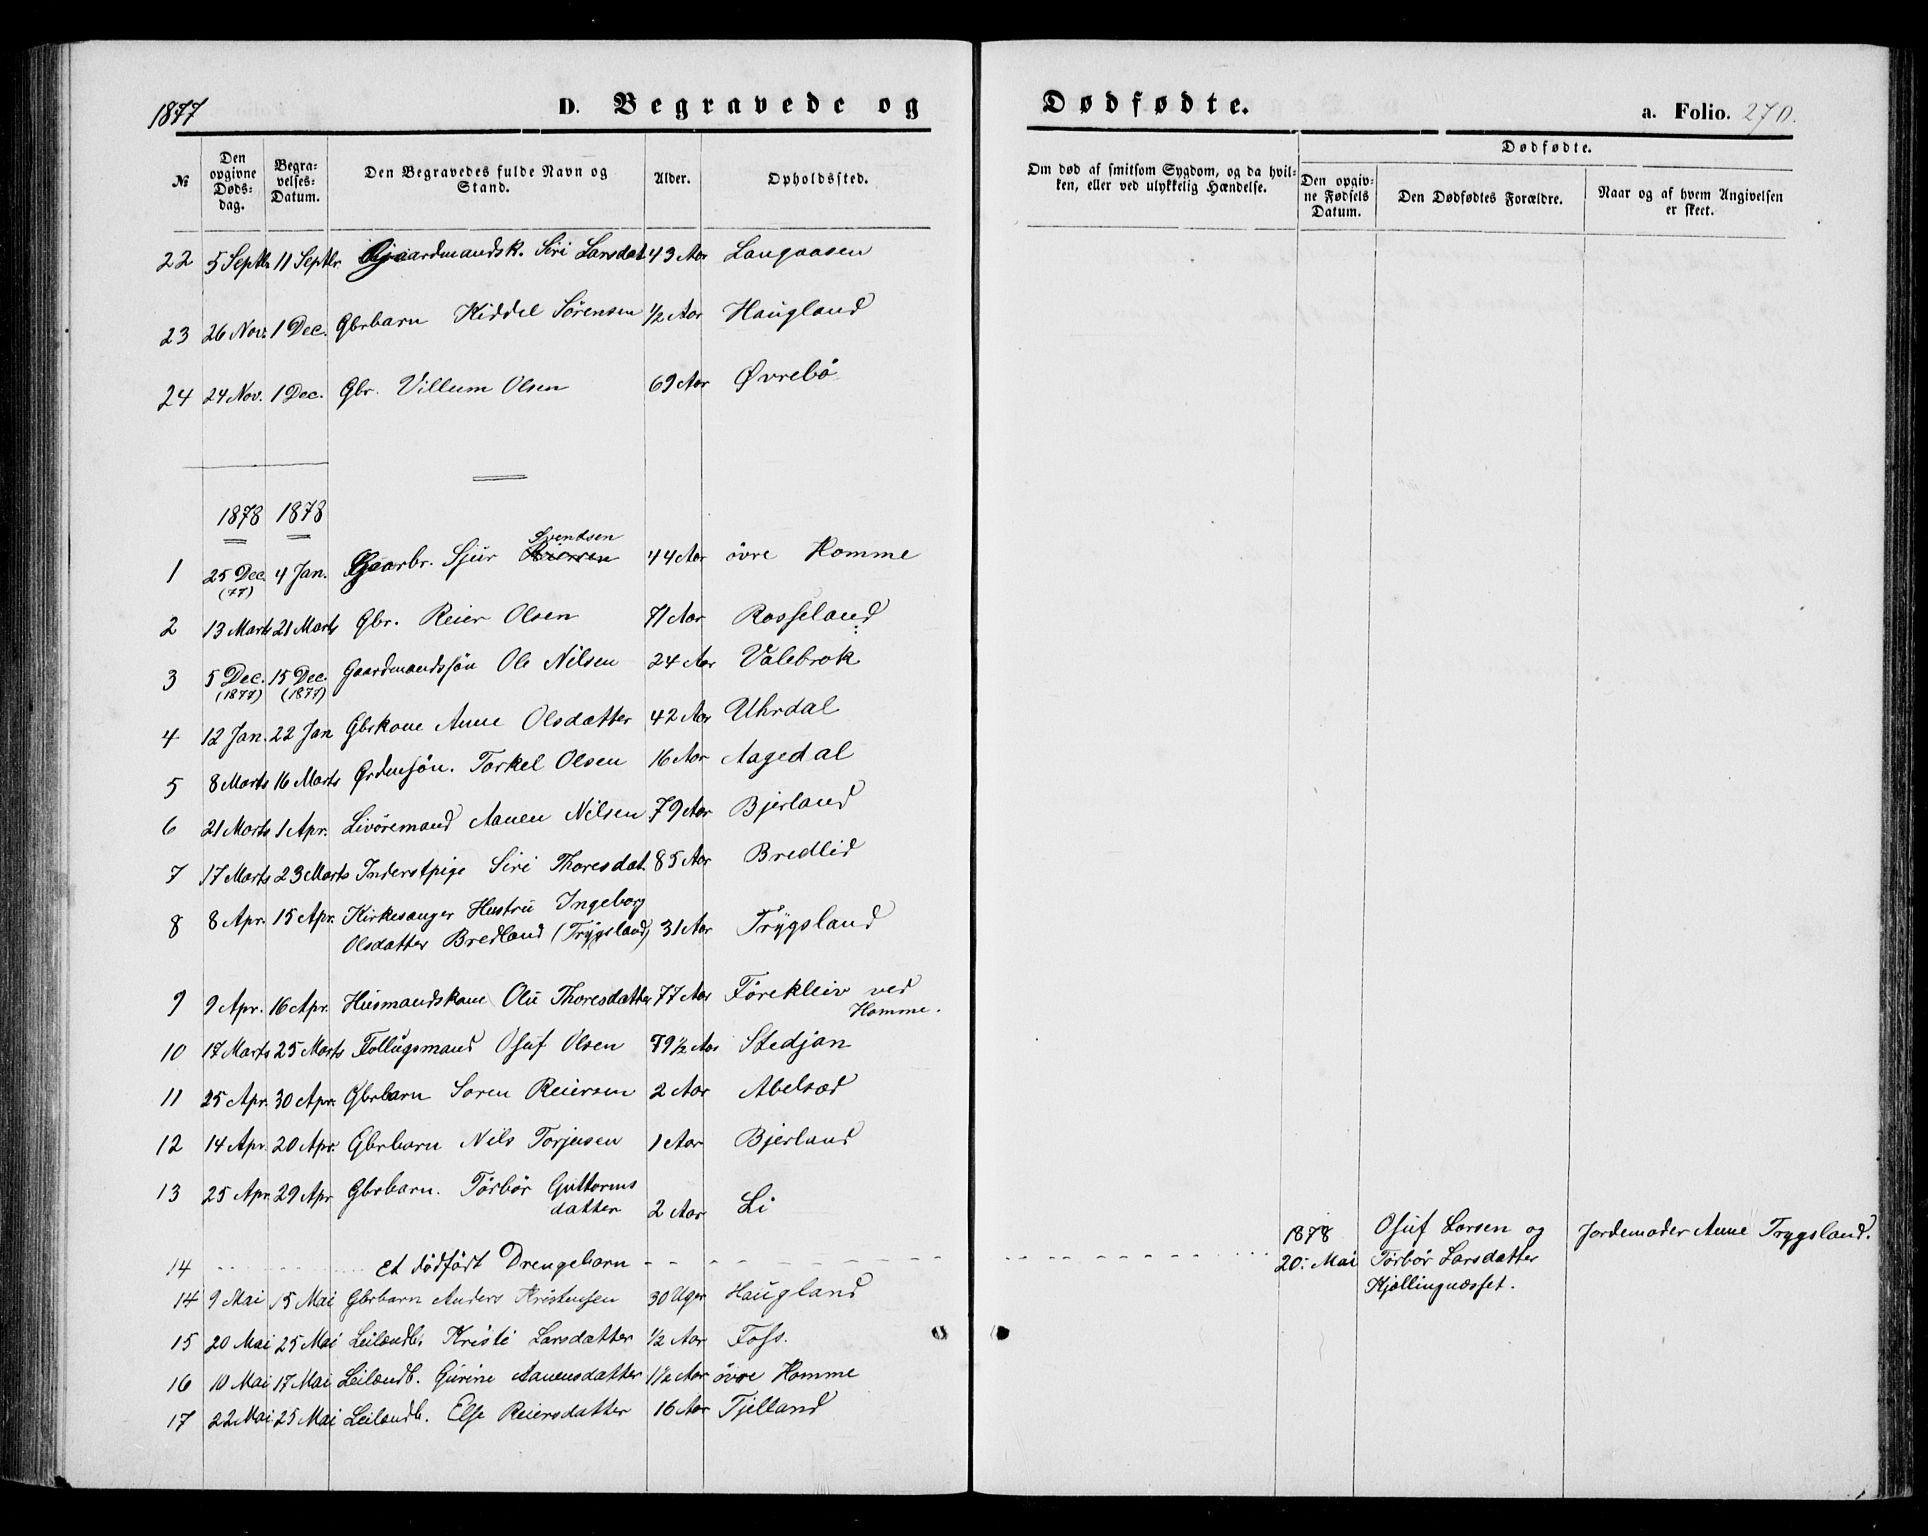 1877
D. Begravede og
Dødfødte.
a. Folio. 270.
№
Den opgivne Døds-dag.
Begra-velses-Datum.
Den Begravedes fulde Navn og Stand.
Alder.
Opholdssted.
Om død af smitsom Sygdom, og da hvil-ken, eller ved ulykkelig Hændelse.
Dødfødte.
Den opgiv-ne Fødsels Datum.
Den Dødfødtes Forældre.
Naar og af hvem Angivelsen er skeet.
22 5 Septbr 11 Septbr. Gaardmandsk. Siri Larsdat 43 Aar Langaasen
23 26 Nov. 1 Dec. Gbrbarn Kiddel Sörensen 1/2 Aar Haugland
24 24 Nov. 1 Dec. Gbr. Villum Olsen 69 Aar Øvrebö
1878 1878
Svendsen
1 25 Dec. 4 Jan. Gaarbr. Sjur 44 Aar övre Homme
(77)
2 13 Marts 21 Marts Gbr. Reier Olsen 71 Aar Rosseland
3 5 Dec. 15 Dec. Gaardmandssön Ole Nilsen 24 Aar Valebrok
(1877) (1877)
4 12 Jan. 22 Jan Gbrkone Anne Olsdatter 42 Aar Uhrdal
5 8 Marts 16 Marts Grdmsön. Torkel Olsen 16 Aar Aagedal
6 21 Marts 1 Apr. Livöremand Aanen Nilsen 79 Aar Bjerland
7 17 Marts 23 Marts Inderstpige Siri Thoresdat 85 Aar Bredlid
8 8 Apr. 15 Apr. Kirkesanger Hustru Ingeborg
Olsdatter Bredland (Trygsland) 31 Aar Trygsland
9 9 Apr. 16 Apr. Husmandskone Olu Thoresdatter 77 Aar Förekleiv ved
Homme.
10 17 Marts 25 Marts Follugsmand Osuf Olsen 79 1/2 Aar Stedjan
11 25 Apr. 30 Apr. Gbrbarn Soren Reiersen 2 Aar Abelsæd
12 14 Apr. 20 Apr. Gbrbarn Nils Torjusen 1 Aar Bjerland
13 25 Apr. 29 Apr. Gbrbarn. Törbör Guttorms
datter 2 Aar Li
14 et dödfödt Drengebarn
1878 Osuf Larsen og Jordemoder Anne Trygsland.
20: Mai Törbör Larsdatter
Kjællingnæsset.
14 9 Mai 15 Mai Gbrbarn Anders Kristensen 30 Uger Haugland
15 20 Mai 25 Mai Leilændb. Kristi Larsdatter 1/2 Aar Foss.
16 10 Mai 17 Mai Leilændb. Gurine Aanensdatter 1 1/2 Aar övre Homme
17 22 Mai 25 Mai Leilændb. Else Reiersdatter 16 Aar Tjelland